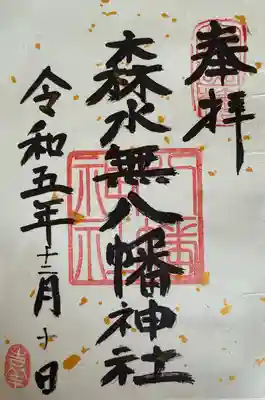 奉拝
森水無八幡神社
令和五年十二月十日